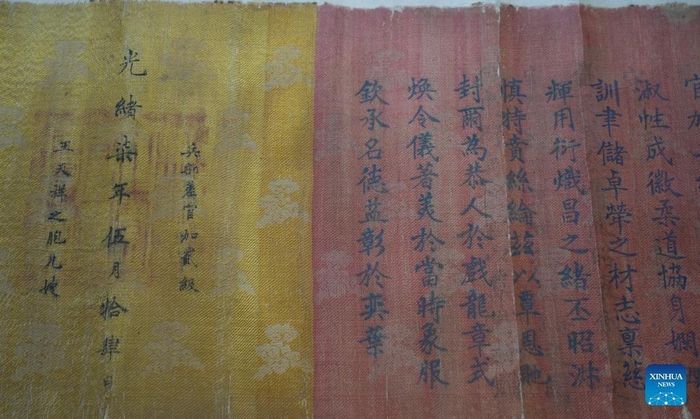 官加
淑性成徽柔道協身嫺
訓聿儲卓犖之材志稟慈
輝用衍熾昌之緒丕昭淑
慎特賁絲綸茲以覃恩貤
封爾為恭人於戲龍章式
煥令儀著美於當時象服
欽承名德益彰於奕葉
兵部差官加貳級
光緒柒年伍月拾肆日
王天祥之胞兄嫂
XINHUA
NEWS